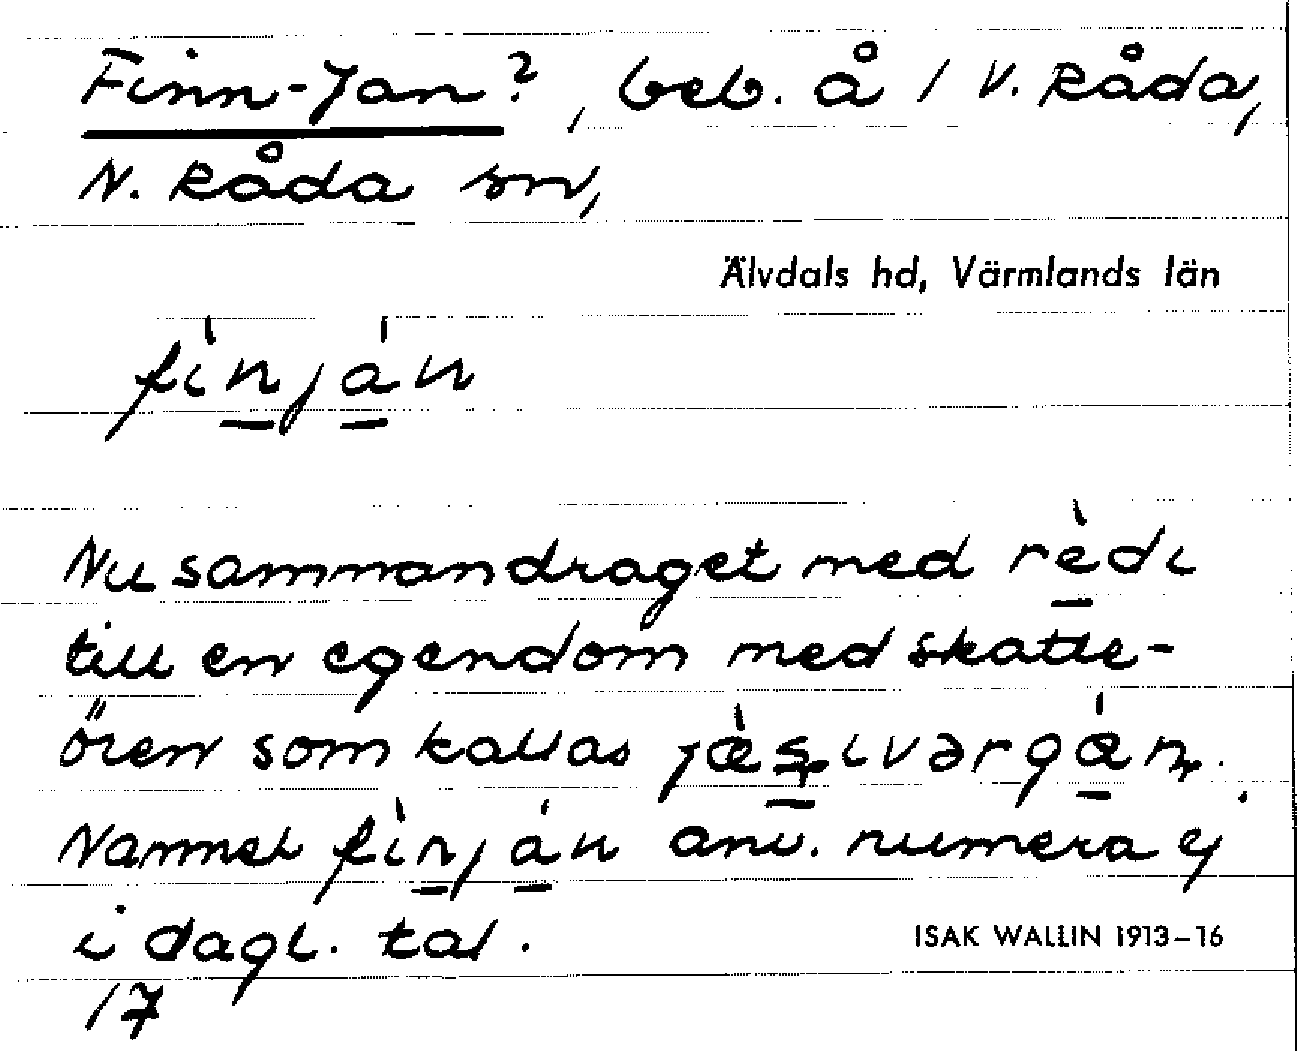 Finn-Jan?, beb. å / V. Råda,
N. Råda sn,
Älvdals hd, Värmlands län
fìnján
Nu sammandraget med rèdi
till en egendom med skatte-
ören som kallas
Namnet fìnján anv. numera ej
i dagl. tal.
ISAK WALLIN 1913-16
17